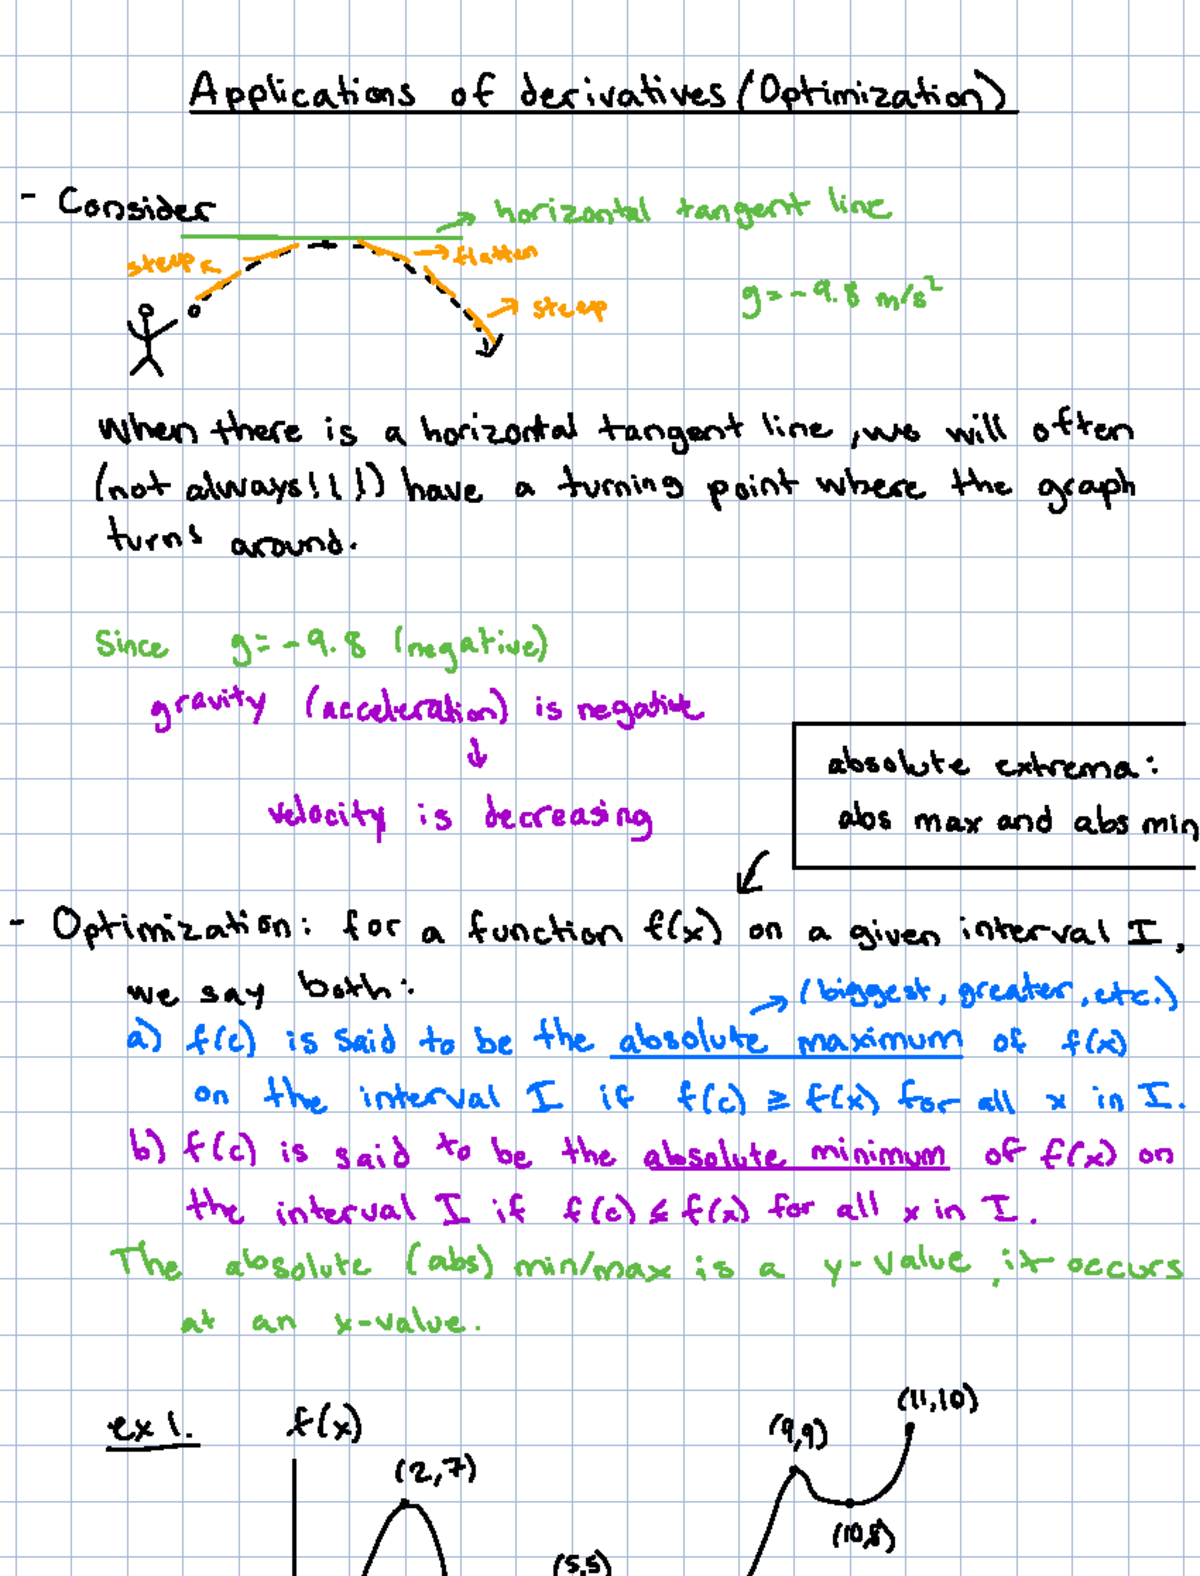 Applications of derivatives (Optimization)
- Consider
→ horizontal tangent line
steep
→ flatten
→ steep
g = -9.8 m/s²
When there is a horizontal tangent line, we will often
(not always!!!) have a turning point where the graph
turns around.
Since g = -9.8 (negative)
gravity (acceleration) is negative
↓
velocity is decreasing
absolute extrema:
abs max and abs min
- Optimization: for a function f(x) on a given interval I,
we say both:
→ (biggest, greater, etc.)
a) f(c) is said to be the absolute maximum of f(x)
on the interval I if f(c) ≥ f(x) for all x in I.
b) f(c) is said to be the absolute minimum of f(x) on
the interval I if f(c) ≤ f(x) for all x in I.
The absolute (abs) min/max is a y-value, it occurs
at an x-value.
ex 1.
f(x)
(2,7)
(5,5)
(9,9)
(10,8)
(11,10)